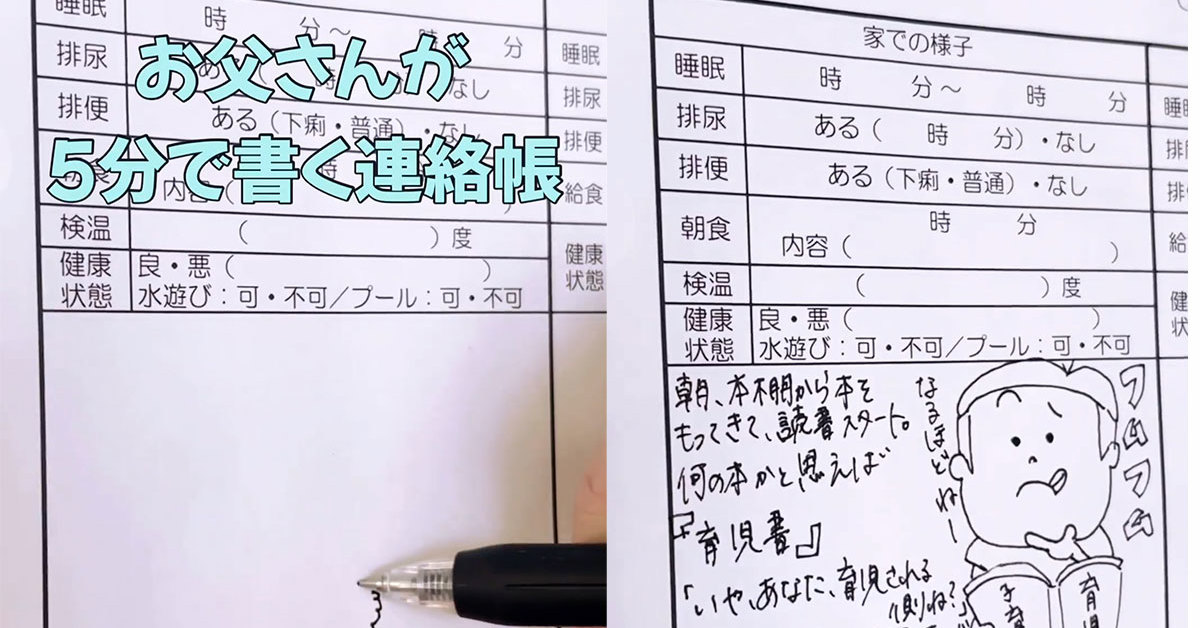 お父さんが
5分で書く連絡帳
睡眠 時 分〜 時 分
排尿 ある（ 時 分）・なし
排便 ある（下痢・普通）・なし
内容（ ）
検温 （ ）度
健康状態 良・悪（ ）
水遊び：可・不可／プール：可・不可
睡眠
排尿
排便
給食
健康
状態
家での様子
睡眠 時 分〜 時 分
排尿 ある（ 時 分）・なし
排便 ある（下痢・普通）・なし
朝食 時 分
内容（ ）
検温 （ ）度
健康状態 良・悪（ ）
水遊び：可・不可／プール：可・不可
朝、本棚から本を
もってきて、読書スタート。
何の本かと思えば
『育児書』
「いや、あなた、育児される
側ね？」
なるほどねー
フムフム
子育
育児